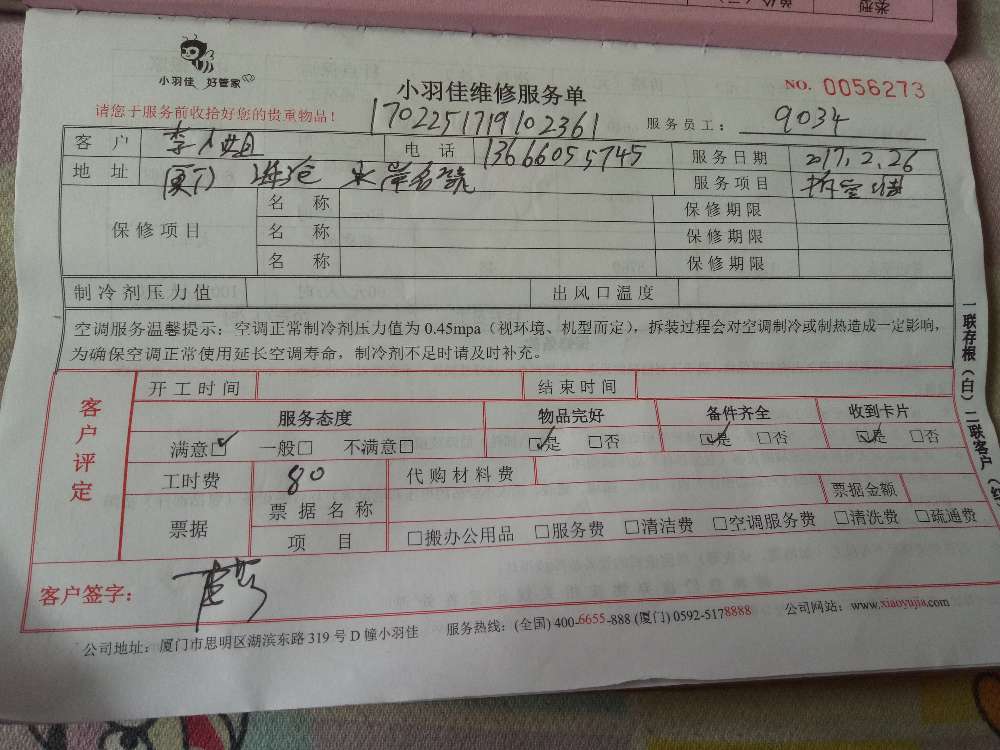 类型
小羽佳 好管家
小羽佳维修服务单
NO. 0056273
请您于服务前收拾好您的贵重物品！
170225171910 2361
服务员工： 9034
客户 李 姐 电话 13666055745 服务日期 2017.2.26
地址 厦门 海沧 水岸名筑 服务项目 拆空调
保修项目 名称 保修期限
名称 保修期限
名称 保修期限
制冷剂压力值 出风口温度
空调服务温馨提示：空调正常制冷剂压力值为 0.45mpa（视环境、机型而定），拆装过程会对空调制冷或制热造成一定影响，
为确保空调正常使用延长空调寿命，制冷剂不足时请及时补充。
客户评定 开工时间 结束时间
服务态度 物品完好 备件齐全 收到卡片
满意☑ 一般□ 不满意□ ☑是 □否 ☑是 □否 ☑是 □否
工时费 80 代购材料费
票据 票据名称 票据金额
项目 □搬办公用品 □服务费 □清洁费 □空调服务费 □清洗费 □疏通费
客户签字：
公司地址：厦门市思明区湖滨东路 319 号 D 幢小羽佳 服务热线：(全国) 400-6655-888 (厦门) 0592-5178888 公司网站：www.xiaoyujia.com
一联存根（白）二联客户